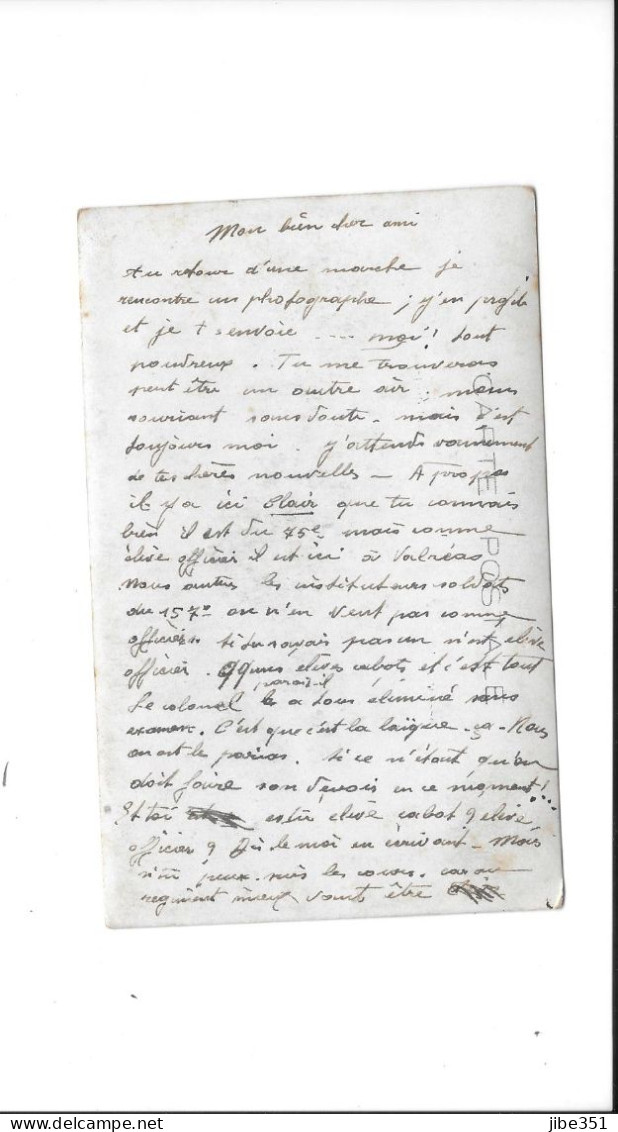 Mon bien cher ami
Au retour d'une marche je
rencontre un photographe ; j'en profite
et je t'envoie .... moi ! tout
poudreux . Tu me trouveras
peut être un autre air , moins
souriant sans doute . mais c'est
toujours moi . J'attends
de tes chères nouvelles — A propos
il y a ici Clair que tu connais
bien il est du 75e mais comme
élève officier il est ici à Valréas
Nous autres les instituteurs soldats
du 157e on n'en veut pas comme
officiers . Si tu savais pas un n'est élève
officier . Qques élèves cabots et c'est tout
paraît-il
Le colonel a tous éliminé sans
examen . C'est que c'est la laïque . ça - Nous
on est le parias . Si ce n'était qu'on
doit faire son devoir en ce moment ! ...
Et toi es tu élève cabot ? élève
officier ? Dis le moi en écrivant - Mais
si tu peux les cours . car au
régiment mieux vaut être
CARTE POSTALE
delcampe.net
jibe351